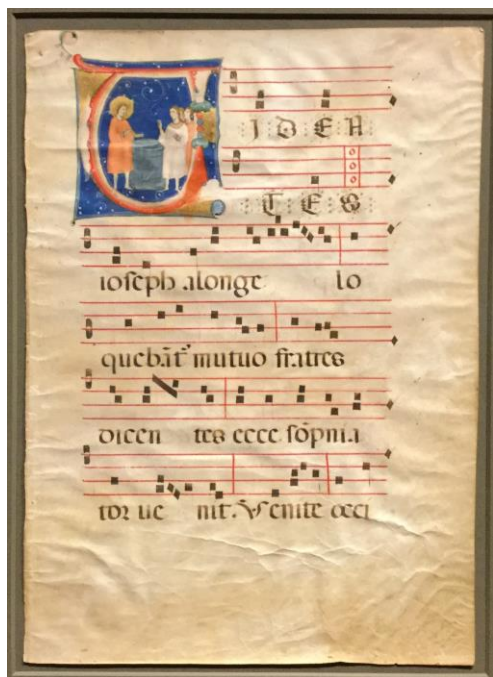 VIDEN
TES
ioseph alonge lo
quebāt᷒ mutuo fratres
dicen tes ecce sōpnia
tor ue nit. ℣ enite occi